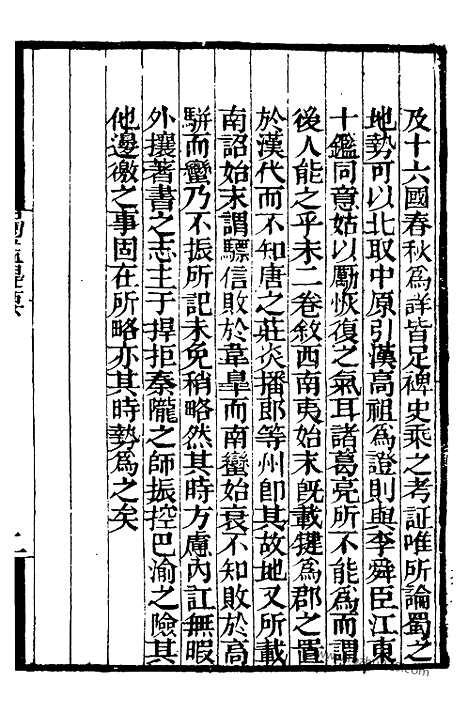 及十六國春秋爲詳皆足裨史乘之考証唯所論蜀之
地勢可以北取中原引漢高祖爲證則與李舜臣江東
十鑑同意姑以勵恢復之氣耳諸葛亮所不能爲而謂
後人能之乎末二卷敘西南夷始末旣載犍爲郡之置
於漢代而不知唐之莊炎播郎等州卽其故地又所載
南詔始末謂驃信敗於韋臯而南蠻始衰不知敗於高
駢而蠻乃不振所記未免稍略然其時方慮內訌無暇
外攘著書之志主于捍拒秦隴之師振控巴渝之險其
他邊徼之事固在所略亦其時勢爲之矣